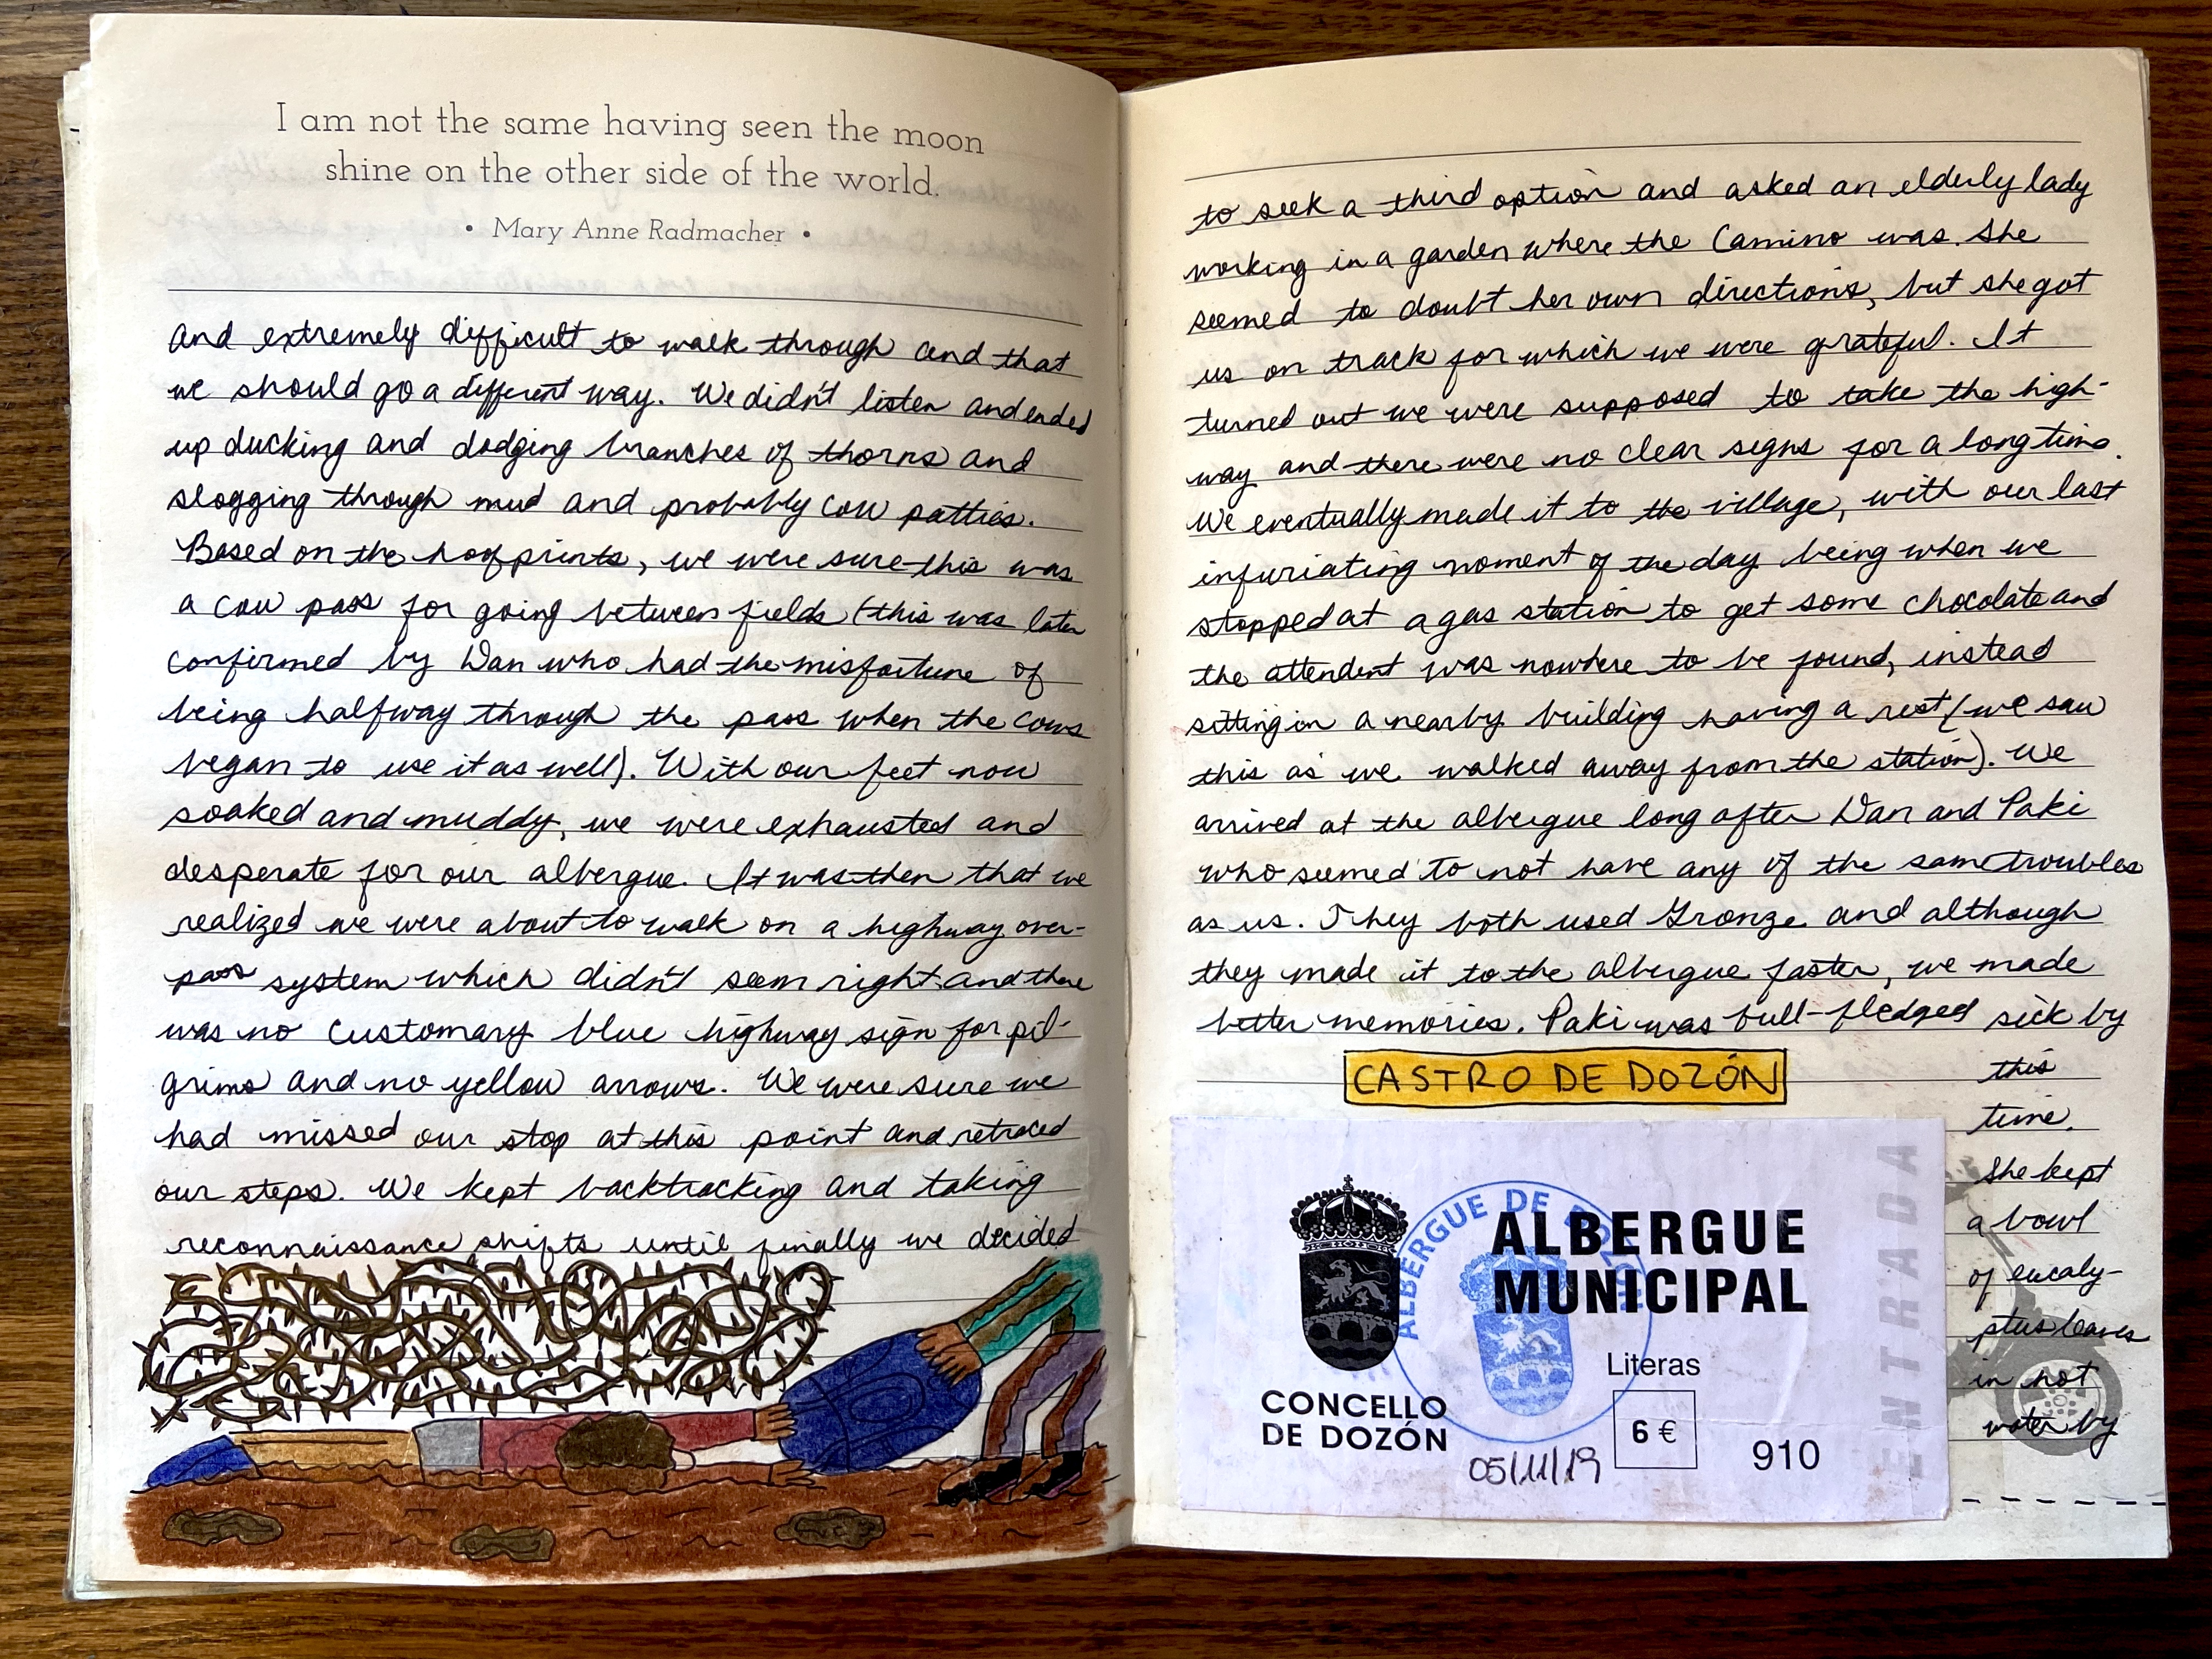 I am not the same having seen the moon
shine on the other side of the world.
• Mary Anne Radmacher •
and extremely difficult to walk through and that
we should go a different way. We didn't listen and ended
up ducking and dodging branches of thorns and
slogging through mud and probably cow patties.
Based on the hoofprints, we were sure this was
a cow pass for going between fields (this was later
confirmed by Dan who had the misfortune of
being halfway through the pass when the cows
began to use it as well). With our feet now
soaked and muddy, we were exhausted and
desperate for our albergue. It was then that we
realized we were about to walk on a highway over-
pass system which didn't seem right and there
was no customary blue highway sign for pil-
grims and no yellow arrows. We were sure we
had missed our stop at this point and retraced
our steps. We kept backtracking and taking
reconnaissance shifts until finally we decided
to seek a third option and asked an elderly lady
working in a garden where the Camino was. She
seemed to doubt her own directions, but she got
us on track for which we were grateful. It
turned out we were supposed to take the high-
way and there were no clear signs for a long time.
We eventually made it to the village, with our last
infuriating moment of the day being when we
stopped at a gas station to get some chocolate and
the attendent was nowhere to be found, instead
sitting in a nearby building having a rest (we saw
this as we walked away from the station). We
arrived at the albergue long after Dan and Paki
who seemed to not have any of the same troubles
as us. They both used Gronze and although
they made it to the albergue faster, we made
better memories. Paki was full-fledged sick by
this
time.
She kept
a bowl
of eucaly-
ptus leaves
in hot
water by
CASTRO DE DOZÓN
ALBERGUE DE DOZÓN
ALBERGUE
MUNICIPAL
CONCELLO
DE DOZÓN
Literas
6 €
05/11/19
910
ENTRADA